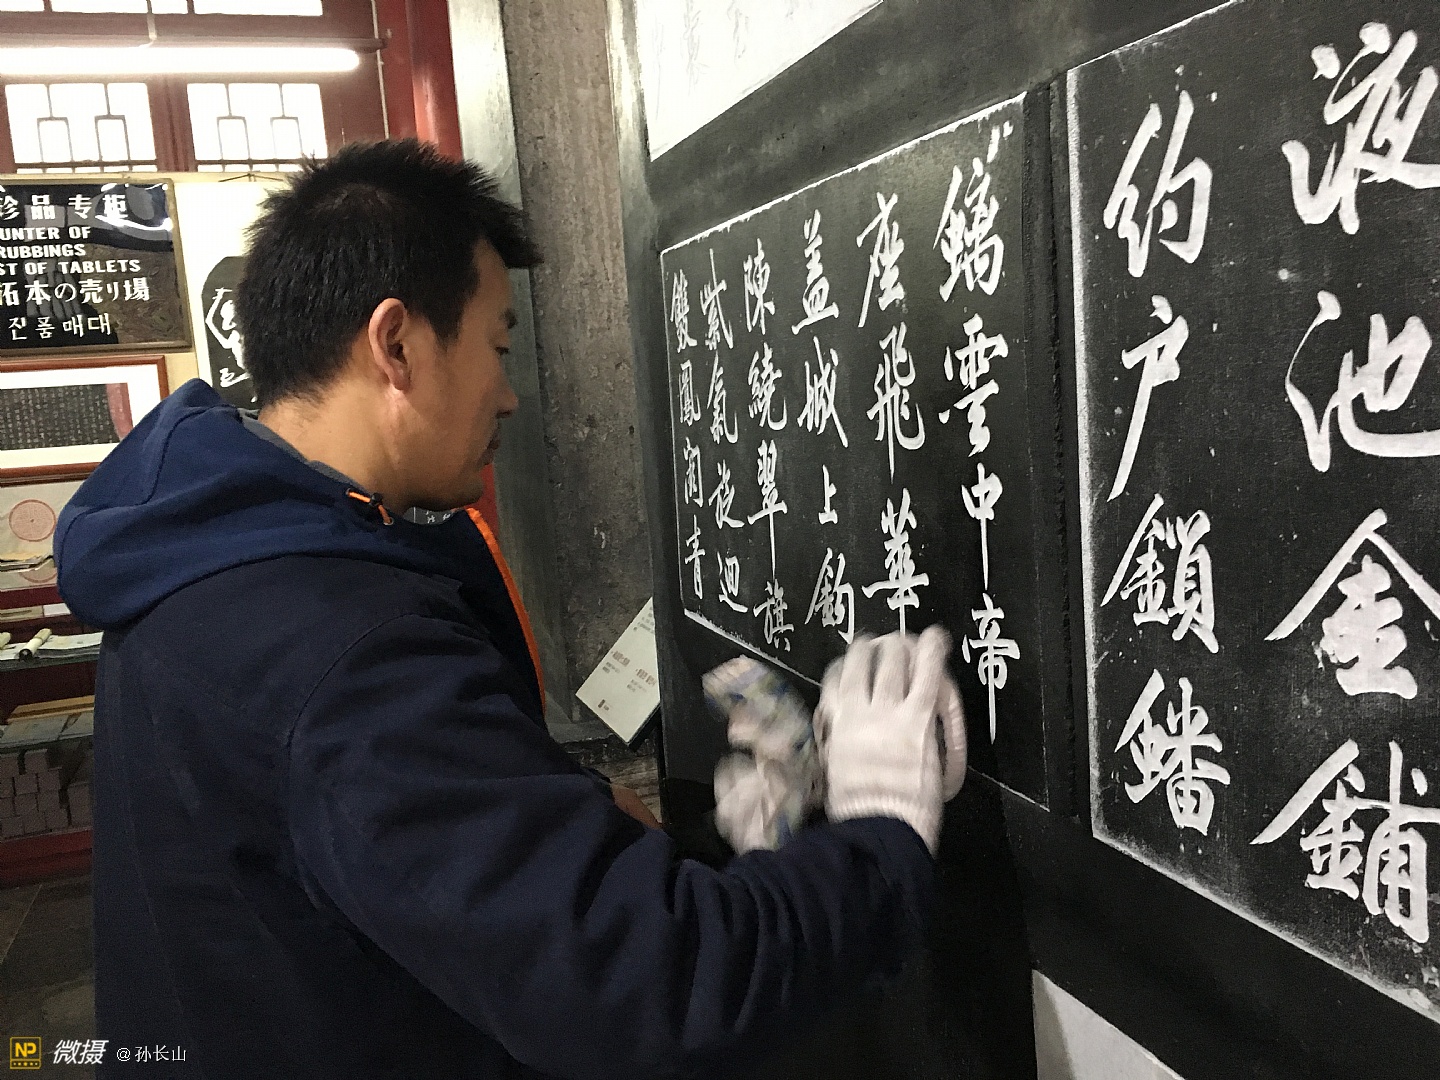 珍品专柜
UNTER OF
RUBBINGS
ST OF TABLETS
拓本の売り場
진품매대
液池金鋪
约户鎖蟠
雲中帝
座飛華
盖城上鈎
陳繞翠旗
紫氣夜迴
雙鳳闕青
NP 微摄 @孙长山